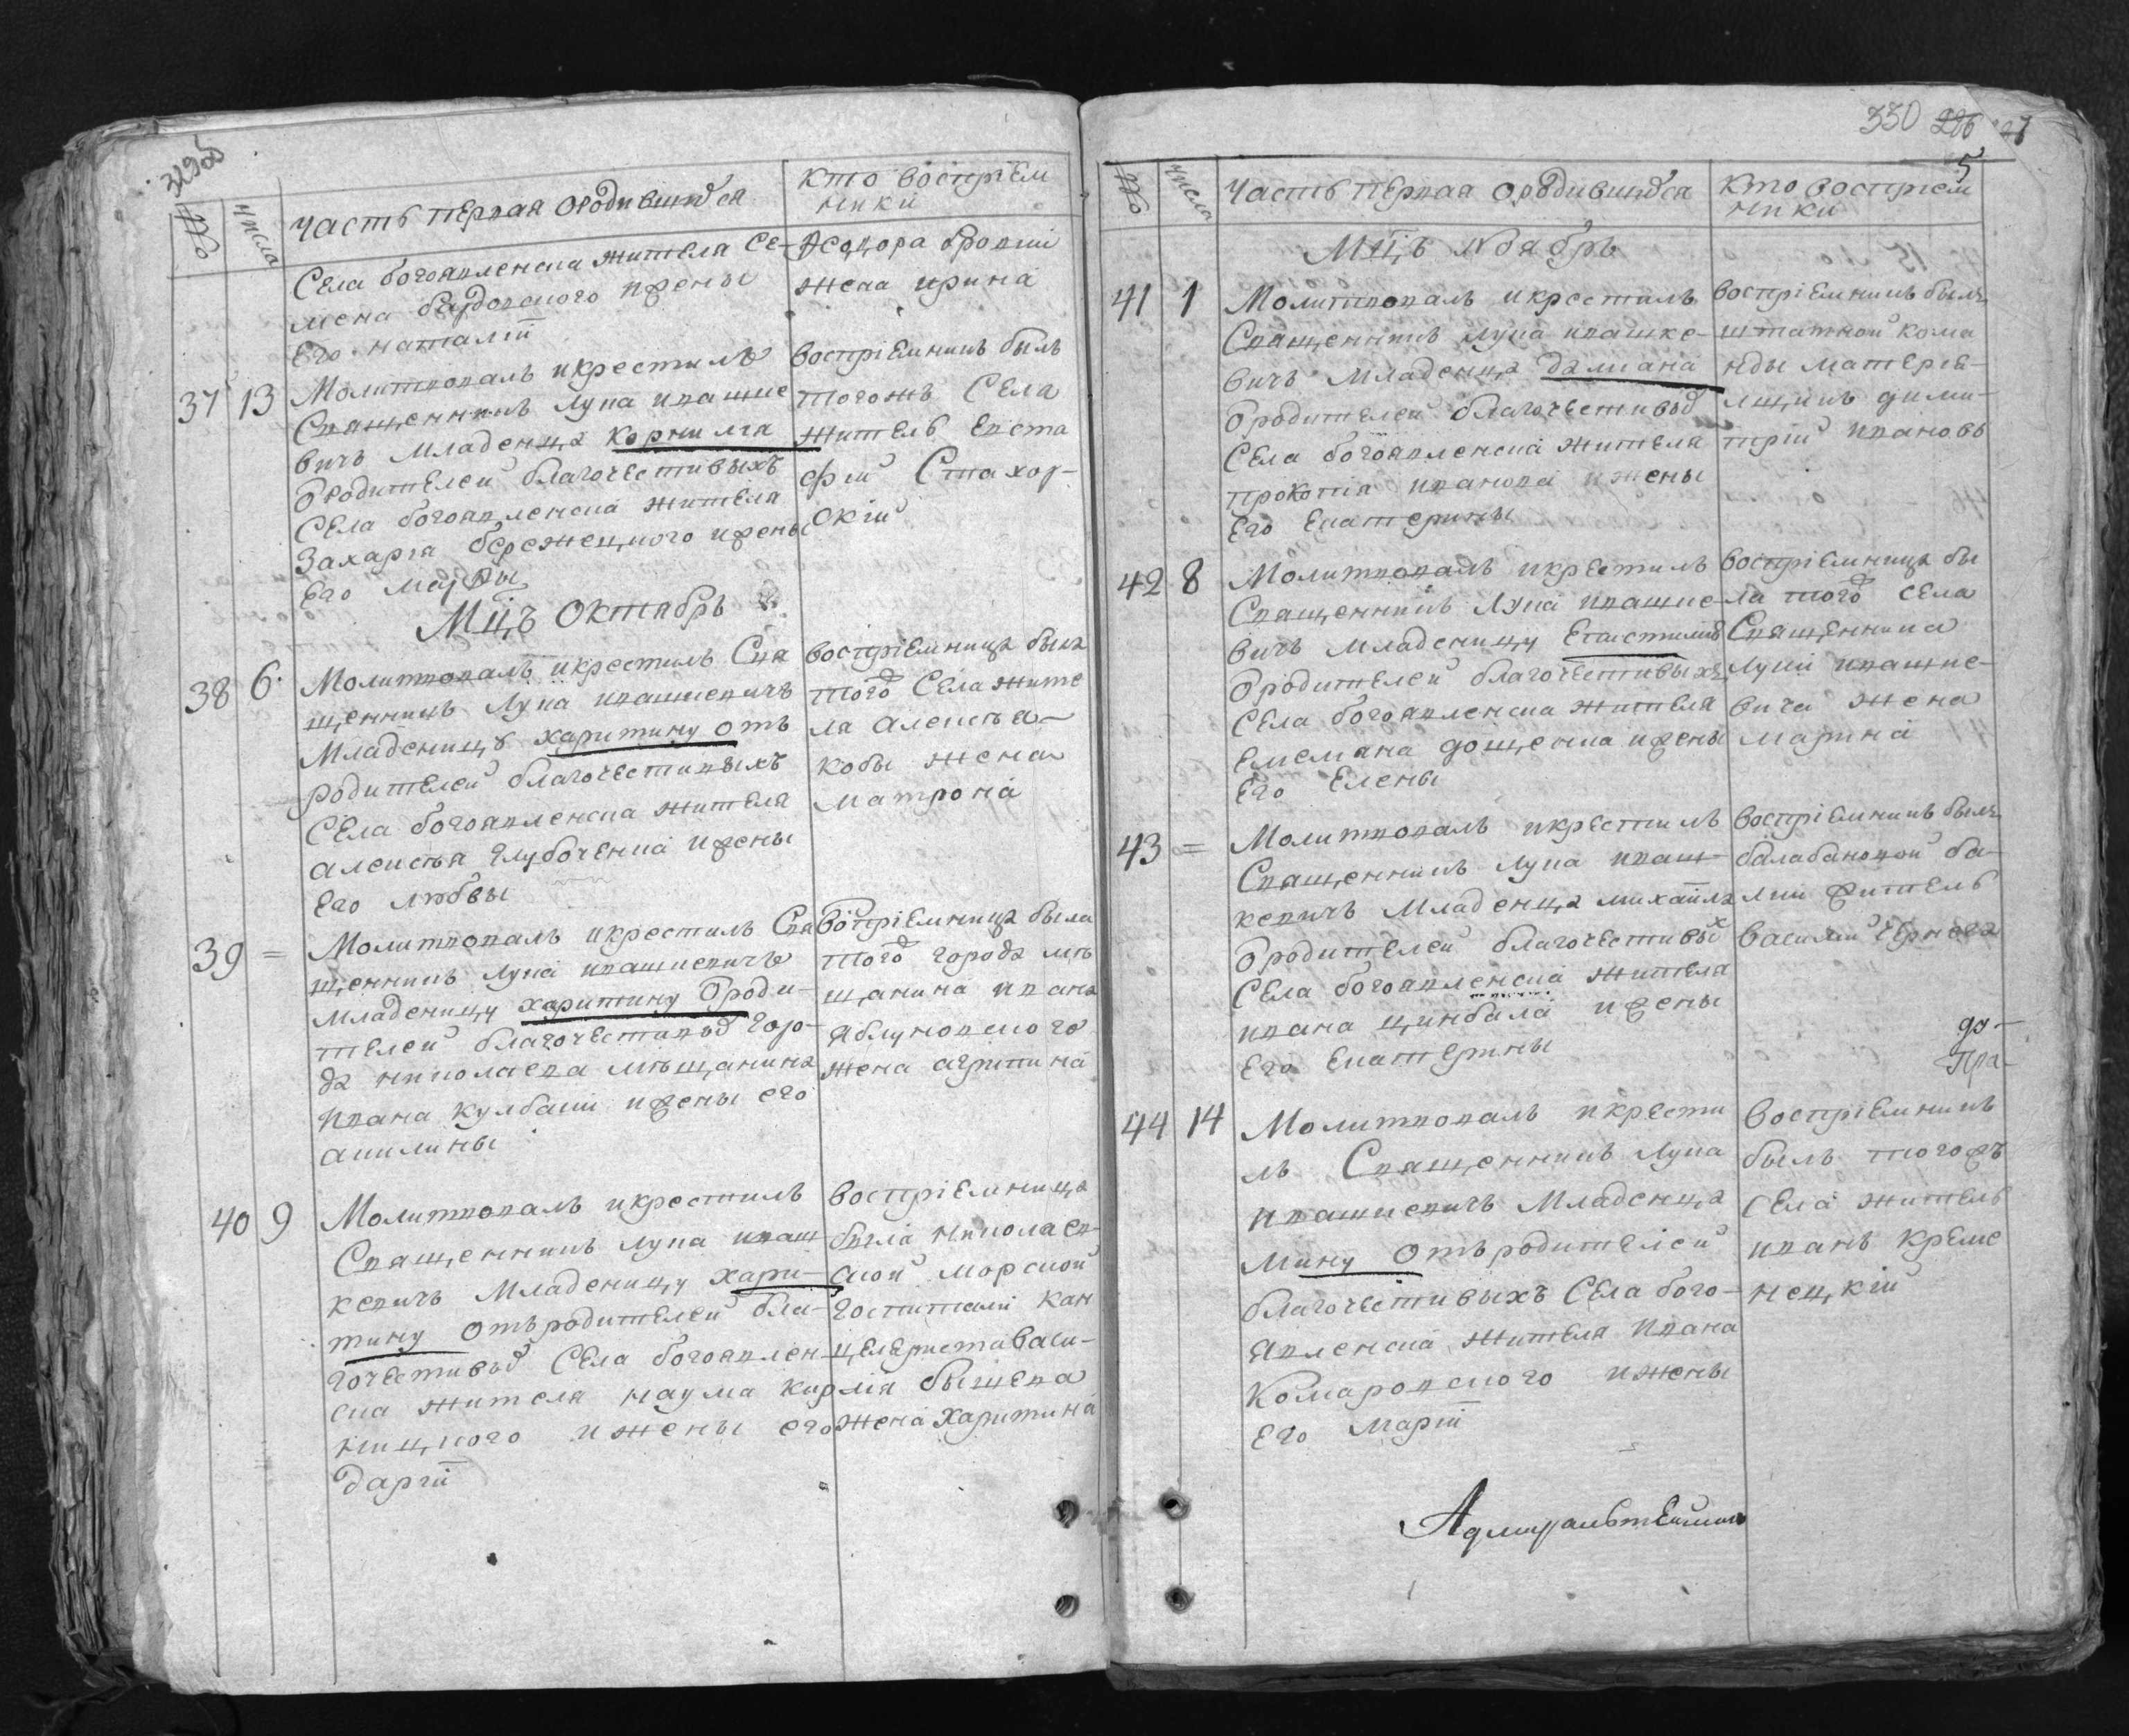 329об
№
числа
Часть первая о родившихся
Кто восприем
ники
Села богоявленска жителя Се-
мена бардовского и жены
Его наталіи
Феодора
жена ирина
37 13
Молитвовалъ и крестилъ
Священникъ лупа ивашке
вичъ Младенца корнилія
Ѿ родителей благочестивыхъ
Села богоявленска жителя
Захарія бережецкого и жены
Его марѳы
воспріемникъ былъ
тогожъ Села
житель Евста
фій Стахор
скій
Мцъ Октябрь
38 6
Молитвовалъ и крестилъ Свя
щенникъ Лупа ивашкевичъ
Младеницу харитину отъ
родителей благочестивыхъ
Села богоявленска жителя
алексѣя глубоченка и жены
Его любвы
воспріемница была
тогож Села жите
ля алексѣя
кобы жена
матрона
39 =
Молитвовалъ и крестилъ Свя
щенникъ лупа ивашкевичъ
младеницу харитину Ѿ роди-
телей благочестивых горо-
да николаева мѣщанина
ивана кулбаки и жены его
акилины
воспріемница была
тогож города мѣ
щанина ивана
яблуновского
жена агрипина
40 9
Молитвовалъ и крестилъ
Священникъ лупа иваш
кевичъ младеницу хари-
тину отъ родителей бла-
гочестивых Села богоявлен
ска жителя наума кир
ницкого и жены его
даріи
воспріемница
была николаев
ской морской
госпитали кан
целяриста васи-
лія
жена харитина
330 286 27
5
№
числа
Часть первая о родившихся
Кто восприем
ники
Мцъ Ноябрь
41 1
Молитвовалъ и крестилъ
Священникъ лупа ивашке-
вичъ младенца даміана
Ѿ родителей благочестивых
Села богоявленска жителя
прокопія иванова и жены
Его Екатерины
воспріемникъ былъ
штатной кома
нды матерія-
лщикъ дими-
трій ивановъ
42 8
Молитвовалъ и крестилъ
Священникъ лупа ивашке-
вичъ младеницу
Ѿ родителей благочестивыхъ
Села богоявленска жителя
Емелиана дощенка и жены
Его Елены
воспріемница бы
ла тогож села
Священника
лупи ивашке-
вича жена
марина
43 =
Молитвовалъ и крестилъ
Священникъ лупа иваш-
кевичъ младенца михаила
Ѿ родителей благочестивых
Села богоявленска жителя
ивана цимбала и жены
Его Екатерины
воспріемникъ былъ
балабановой ба-
лки житель
василий Чернега
до-
пра-
44 14
Молитвовалъ и крести
лъ Священникъ лупа
ивашкевичъ младенца
мину отъ родителей
благочестивыхъ Села бого-
явленска жителя ивана
комаровского и жены
Его маріи
воспріемникъ
былъ тогожъ
села житель
иванъ креме
нецкій
Адмиралтейской